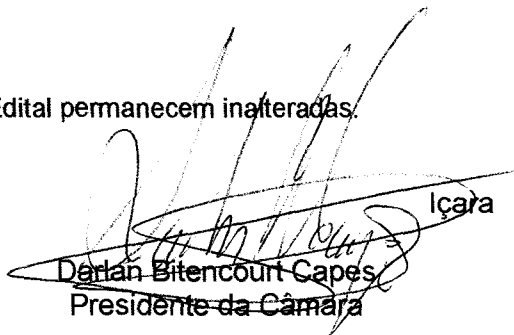 Edital permanecem inalteradas.
Içara
Darlan Bitencourt Capes
Presidente da Câmara